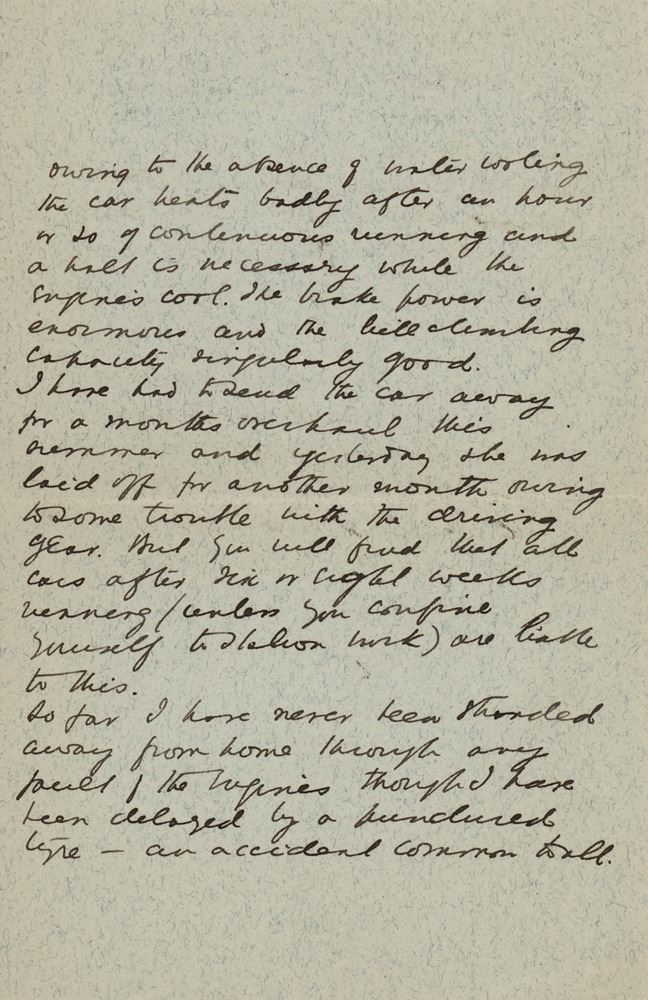 owing to the absence of water cooling
the car heats badly after an hour
or so of continuous running and
a halt is necessary while the
engines cool. The brake power is
enormous and the hill climbing
capacity singularly good.
I have had to send the car away
for a months overhaul this
summer and yesterday she was
laid off for another month owing
to some trouble with the driving
gear. But you will find that all
cars after six or eight weeks
running (unless you confine
yourself to station work) are liable
to this.
So far I have never been stranded
away from home through any
fault of the engines though I have
been delayed by a punctured
tyre – an accident common to all.